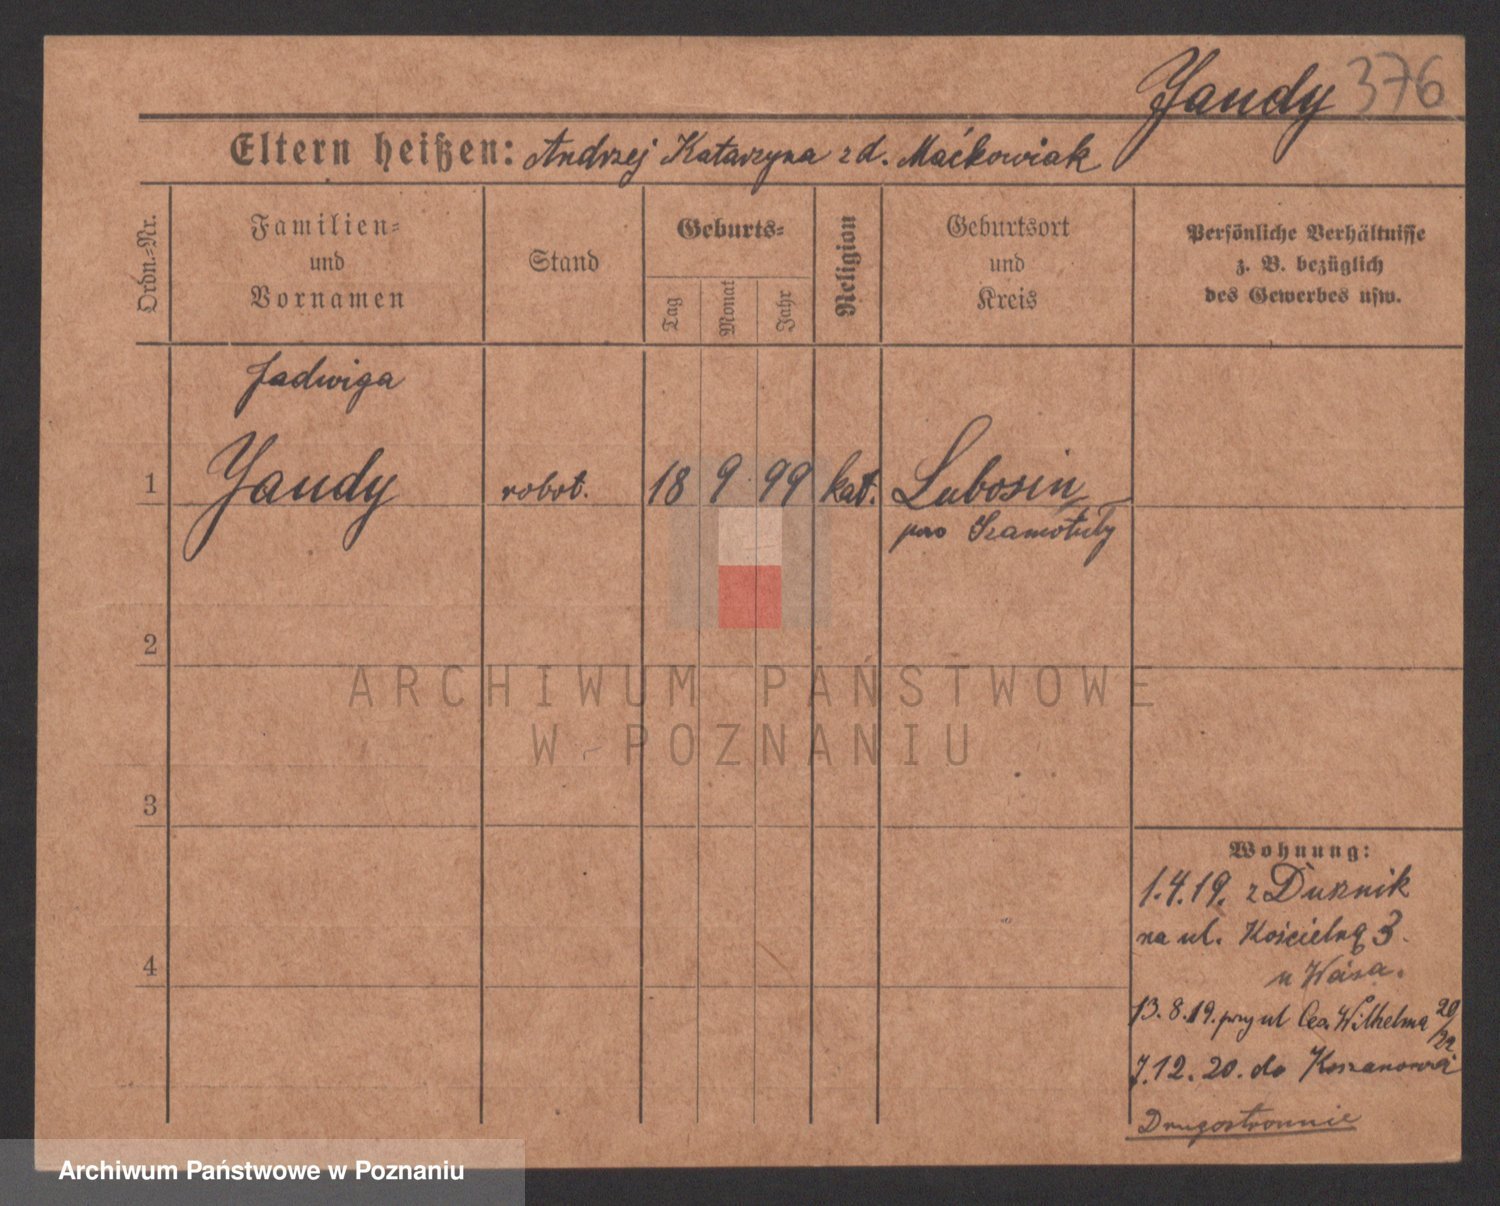 Jandy 376
Eltern heißen: Andrzej Katarzyna z d. Maćkowiak
Ordn.-Nr.
Familien-
und
Vornamen
Stand
Geburts-
Tag
Monat
Jahr
Religion
Geburtsort
und
Kreis
Persönliche Verhältnisse
z. B. bezüglich
des Gewerbes usw.
Jadwiga
1 Jandy robot. 18 9 99 kat. Lubosin
pow Szamotuły
2
3
4
Wohnung:
1.4.19. z Dusznik
na ul. Kościelną 3.
u
13.8.19. przy ul Ces. Wilhelma 20/22
7.12.20. do
Drugostronnie
ARCHIWUM PAŃSTWOWE
W POZNANIU
Archiwum Państwowe w Poznaniu